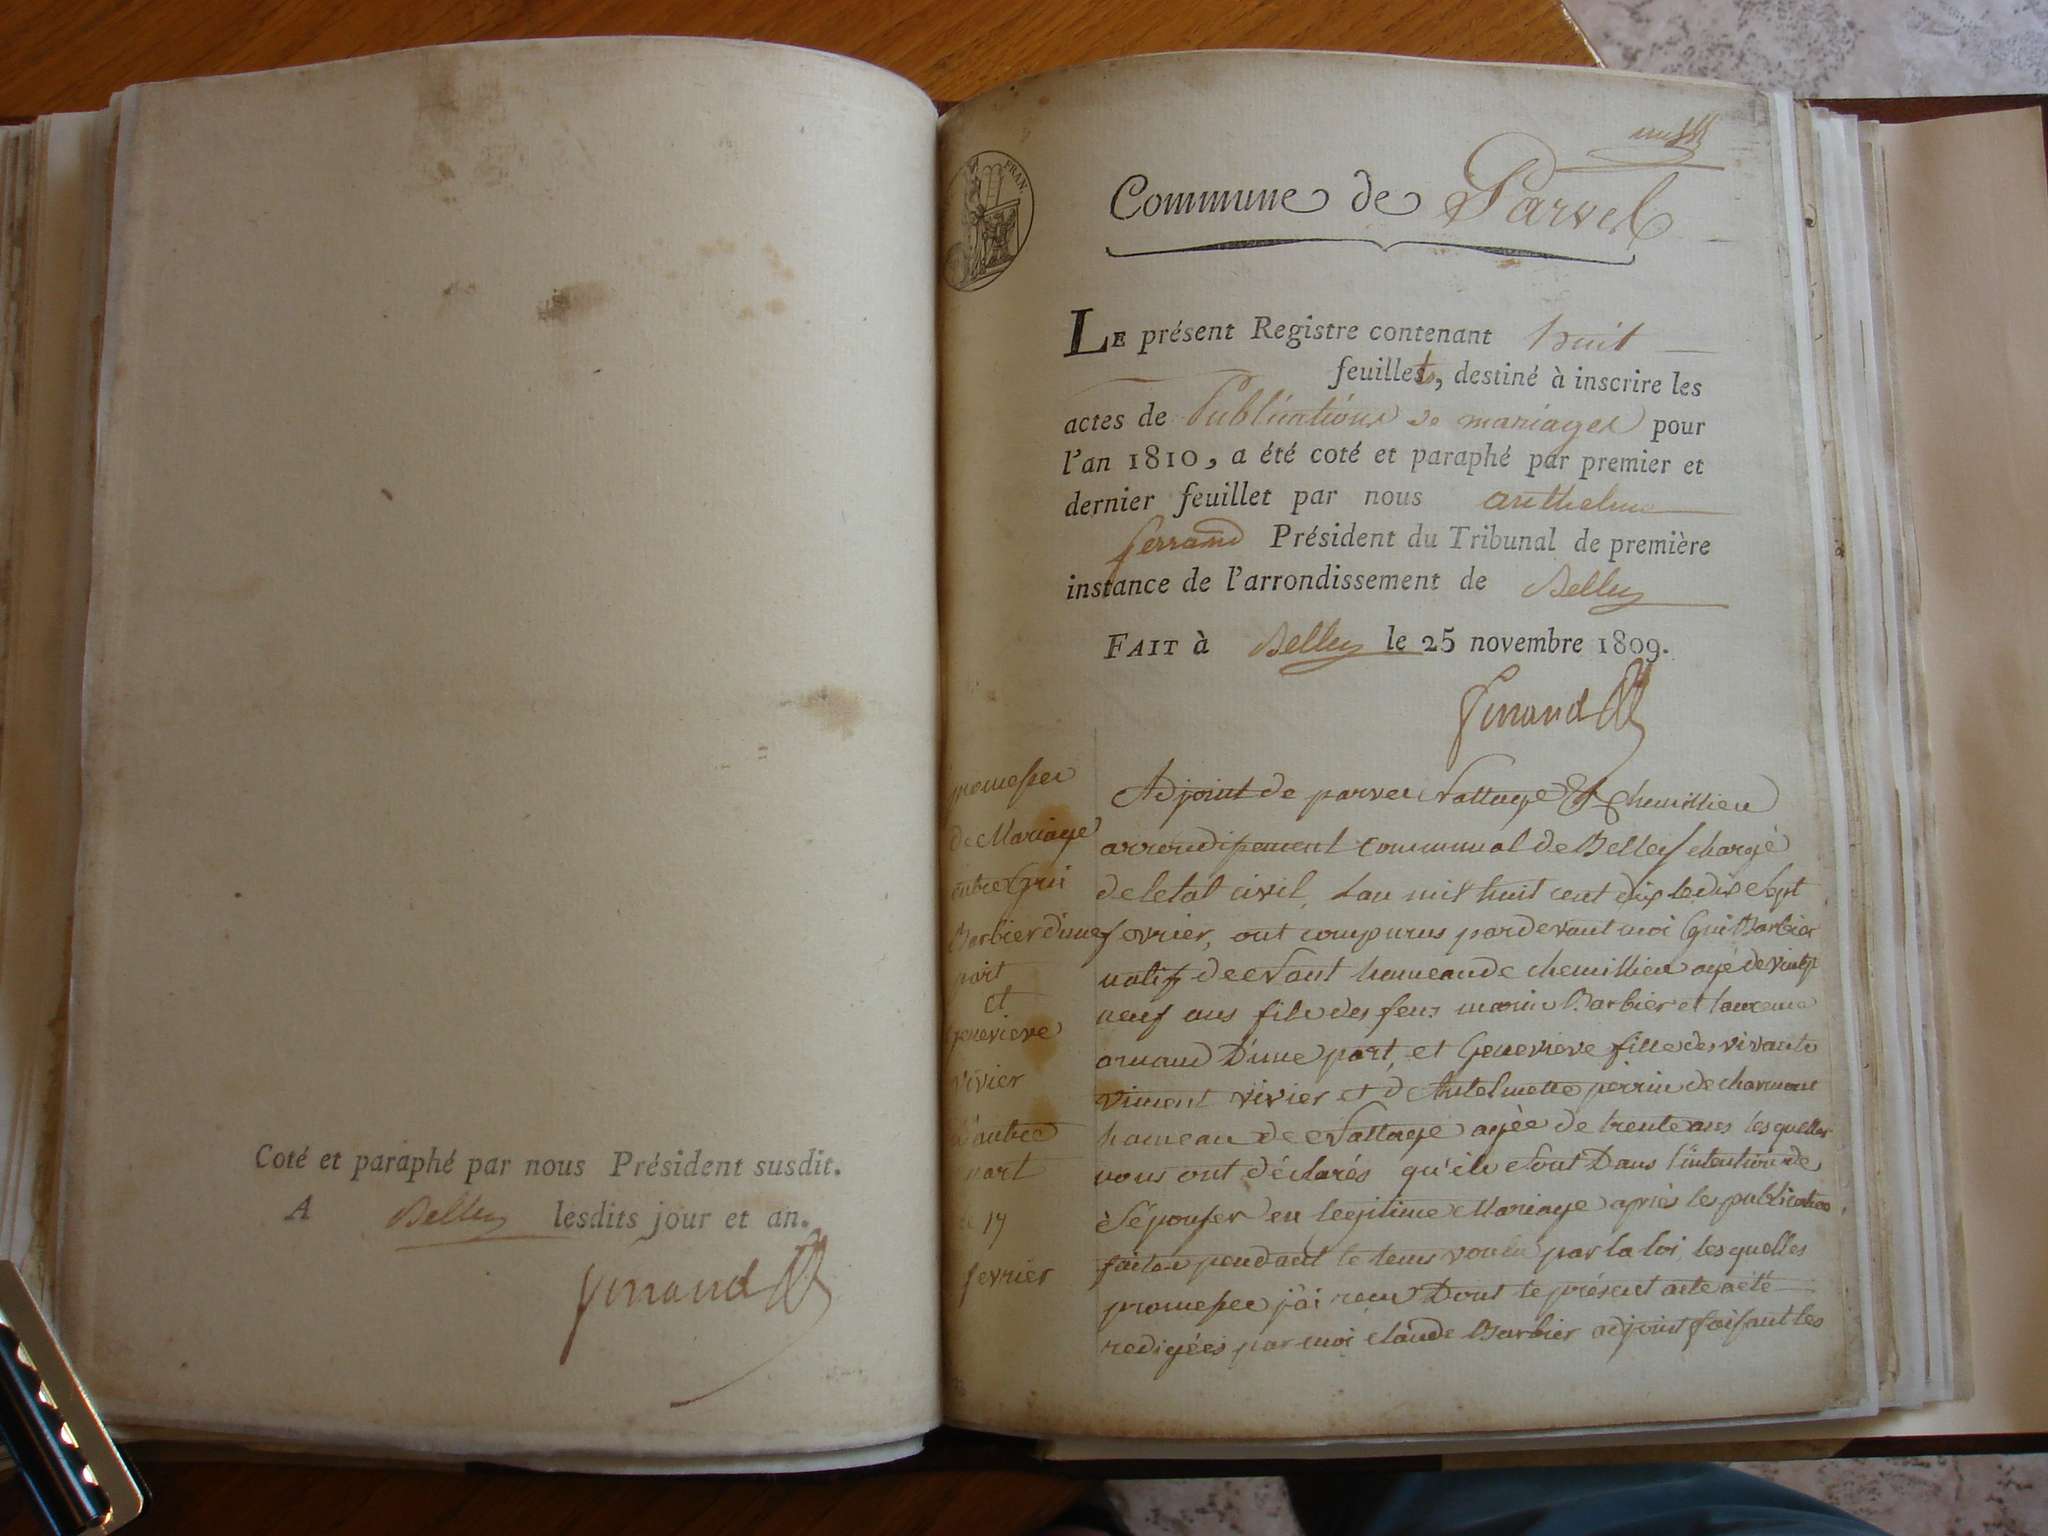 Coté et paraphé par nous Président susdit.
A Belley lesdits jour et an.
ferrand
FRAN
Commune de Parves
LE présent Registre contenant huit
feuillets, destiné à inscrire les
actes de Publications de mariages pour
l'an 1810, a été coté et paraphé par premier et
dernier feuillet par nous anthelme
ferrand Président du Tribunal de première
instance de l'arrondissement de Belley
FAIT à Belley le 25 novembre 1809.
ferrand
promesses
de Mariage
entre Gui
Barbier d'une
part
et
genevieve
vivier
d'autre
part
le 17
fevrier
Adjoint de parves Nattage Et Chemillieu
arrondissement communal de Belley chargé
de letat civil, Lan mil huit cent dix le dix sept
fevrier, ont comparus pardevant moi Gui Barbier
natif de hameau de chemillieu agé de vingt
neuf ans fils des feus marin Barbier et
D'une part, et Genevieve fille des vivants
vincent vivier et d'Antelmette perrin de
hameau de Nattage agée de trente ans lesquelles
nous ont déclarés qu'ils sont Dans l'intention de
s'épouser en legitime Mariage après les publications
faites pendant le tems voulu par la loi, lesquelles
promesses j'ai recu Dont le présent acte a été
redigées par moi claude Barbier adjoint faisant les